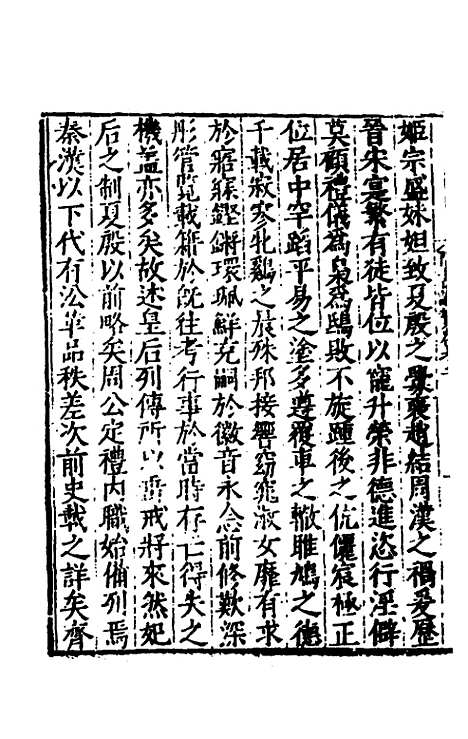 姬宗盛妹妲致夏殷之釁褒趙結周漢之禍爰歷
晉宋寔繁有徒皆位以寵升榮非德進恣行淫僻
莫顧禮儀爲梟爲鴟敗不旋踵後之伉儷宸極正
位居中罕蹈平易之塗多遵覆車之轍雎鳩之德
千載寂寥牝鷄之晨殊邦接響窈窕淑女靡有求
於寤寐鏗鏘環珮鮮克嗣於徽音永念前修歎深
彤管覽載籍於旣往考行事於當時存亡得失之
機蓋亦多矣故述皇后列傳所以垂戒將來然妃
后之制夏殷以前略矣周公定禮內職始備列焉
秦漢以下代有㳂革品秩差次前史載之詳矣齊